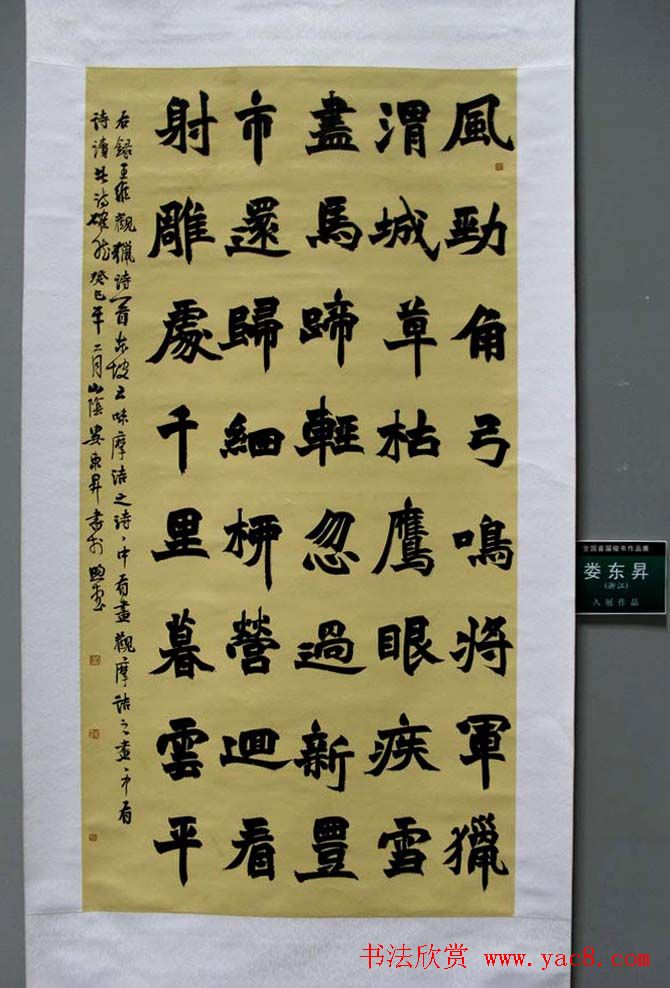 風勁角弓鳴將軍獵
渭城草枯鷹眼疾雪
盡馬蹄輕忽過新豊
市還歸細柳營迴看
射雕處千里暮雲平
右録王維觀獵詩一首東坡云味摩詰之詩、中有畫觀摩詰之畫、中有
詩讀其詩確然癸巳年二月山陰婁東昇書於
全国首届楷书作品展
娄东昇
(浙江)
入展作品
书法欣赏 www.yac8.com